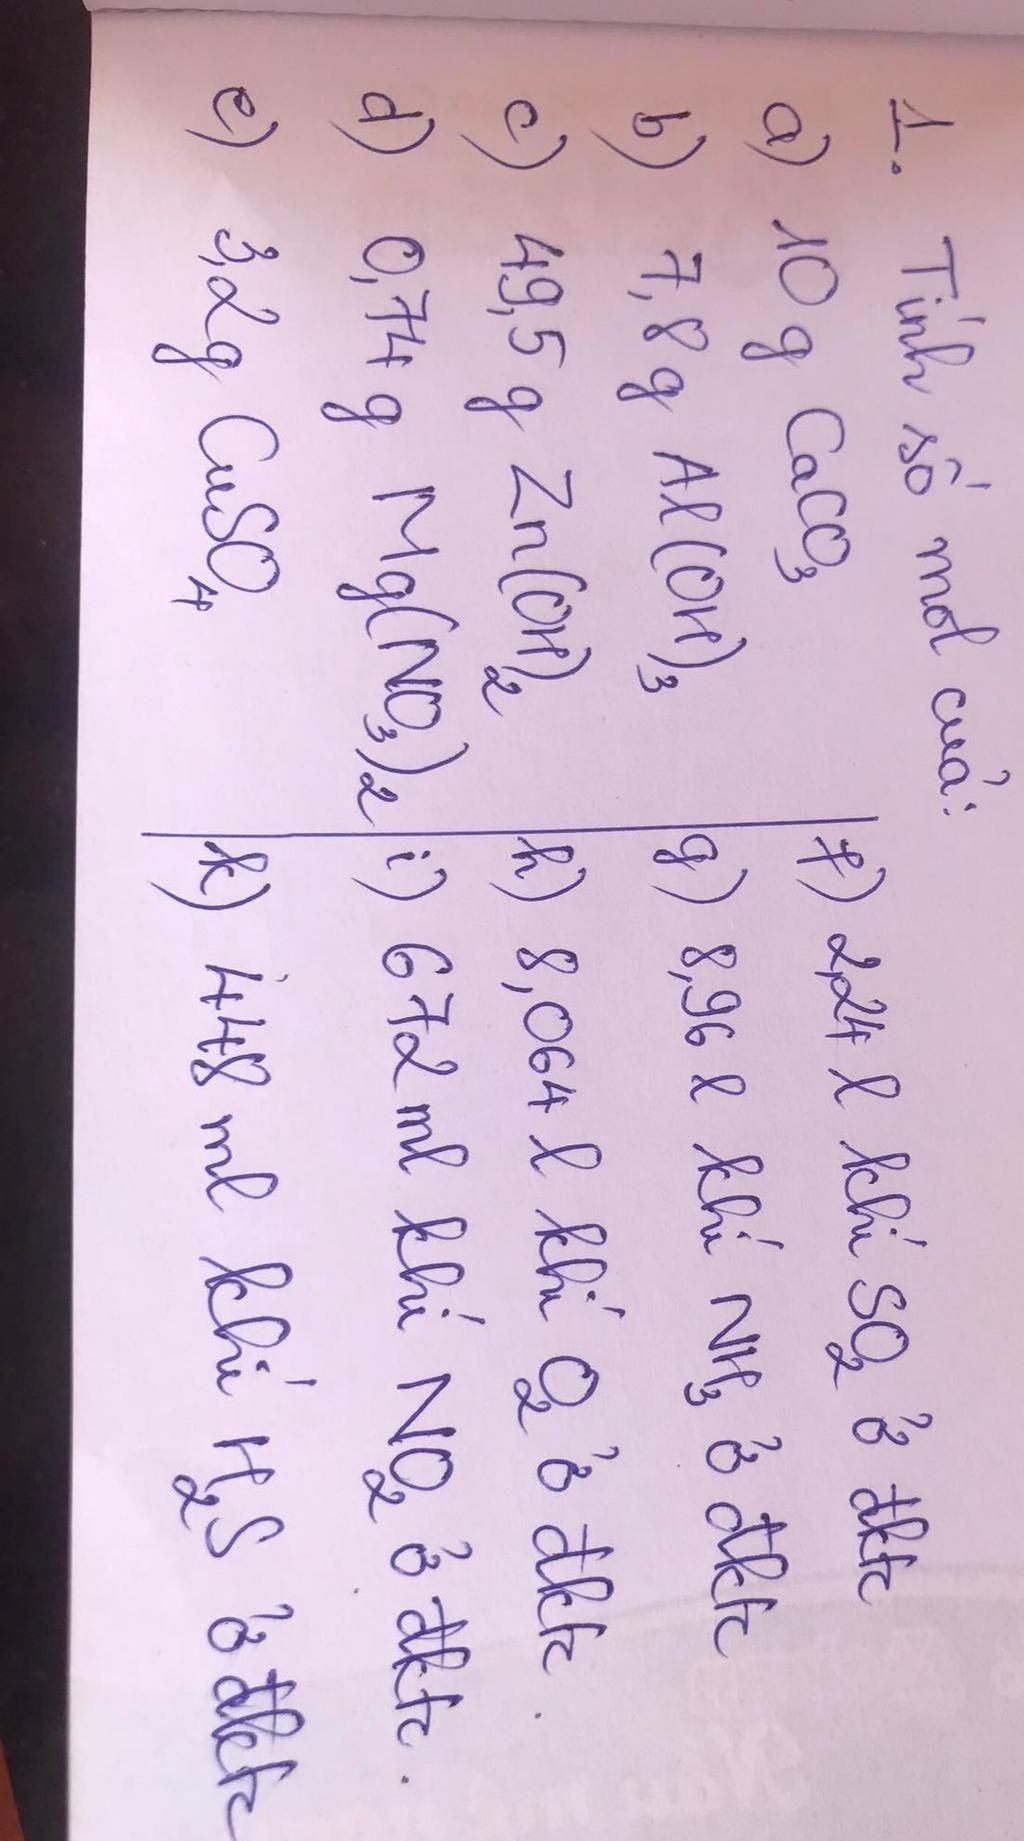 1. Tính số mol của:
a) 10 g CaCO₃
b) 7,8 g Al(OH)₃
c) 49,5 g Zn(OH)₂
d) 0,74 g Mg(NO₃)₂
e) 3,2 g CuSO₄
f) 2,24 l khí SO₂ ở đktc
g) 8,96 l khí NH₃ ở đktc
h) 8,064 l khí O₂ ở đktc.
i) 672 ml khí NO₂ ở đktc.
k) 448 ml khí H₂S ở đktc